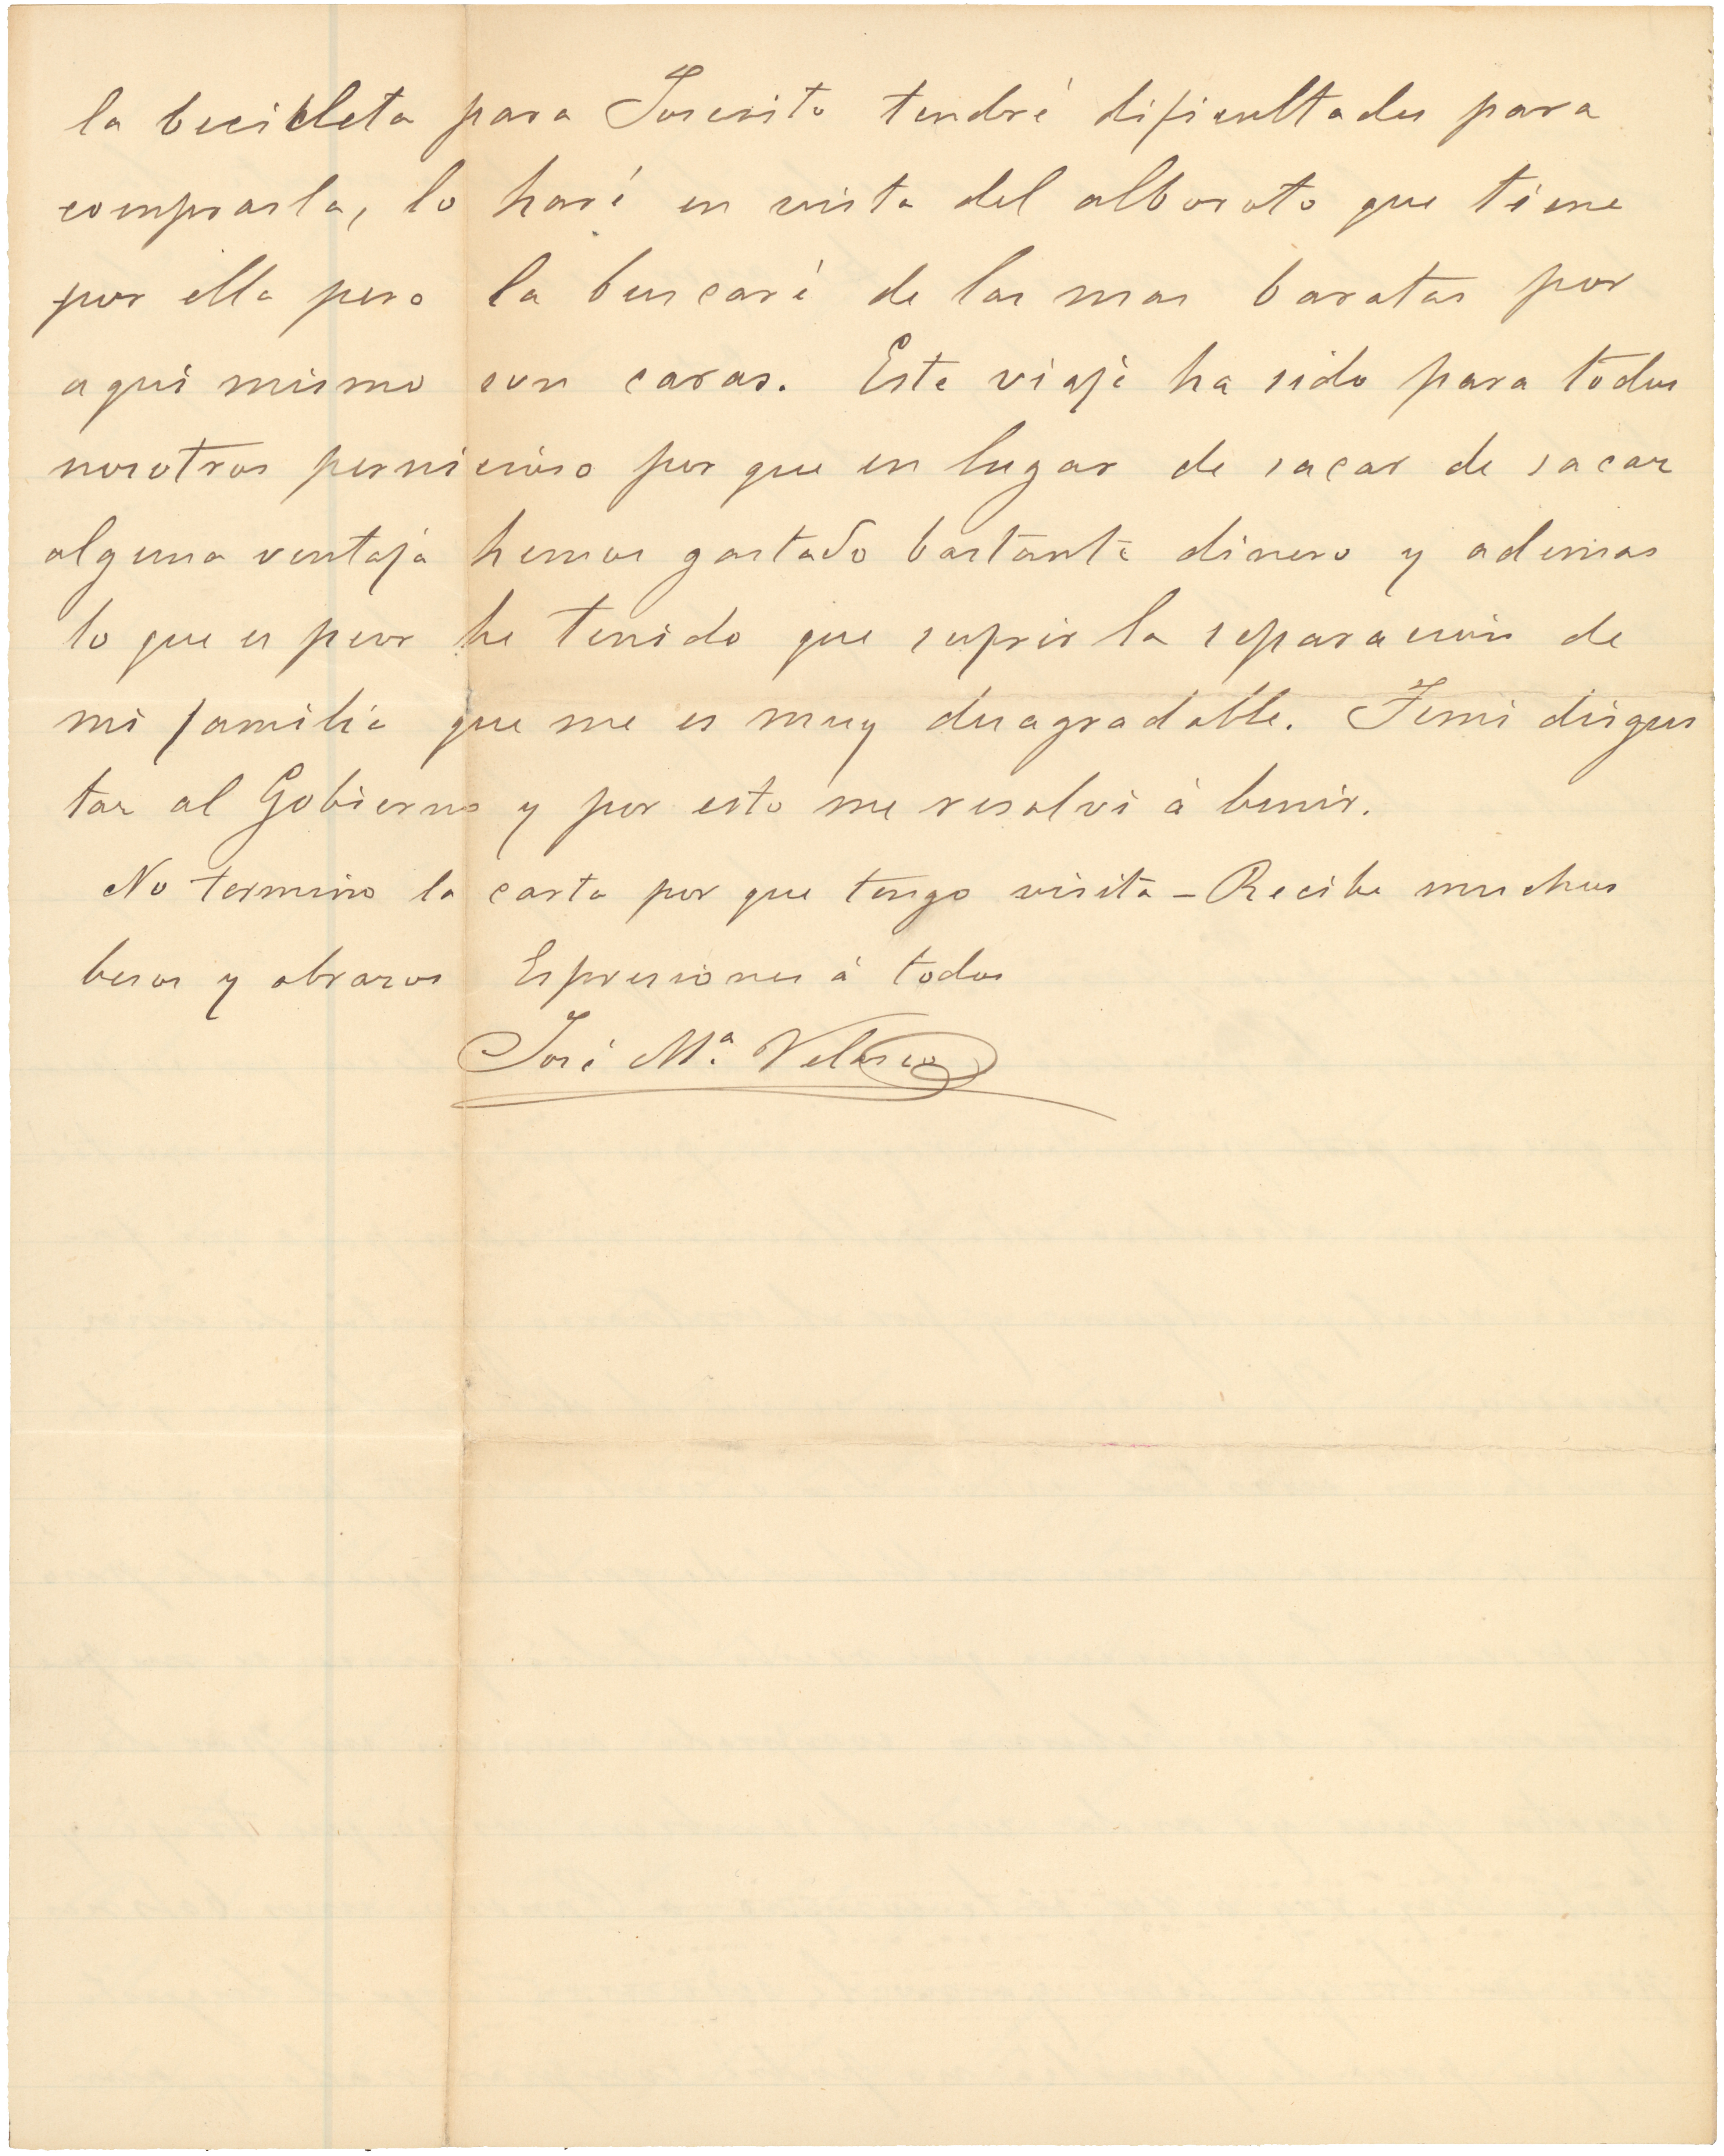 la becicleta para Joseito tendré dificultades para
comprarla, lo haré en vista del alboroto que tiene
por ella pero la buscaré de las mas baratas por
aqui mismo son caras. Este viaje ha sido para todos
nosotros pernicioso por que en lugar de sacar de sacar
alguna ventaja hemos gastado bastante dinero y ademas
lo que es peor he tenido que sufrir la separación de
mi familia que me es muy desagradable. Temi disgus
tar al Gobierno y por esto me resolvi á benir.
No termino la carta por que tengo visita – Recibe muchos
besos y abrazos Espresiones á todos
José Mª. Velasco